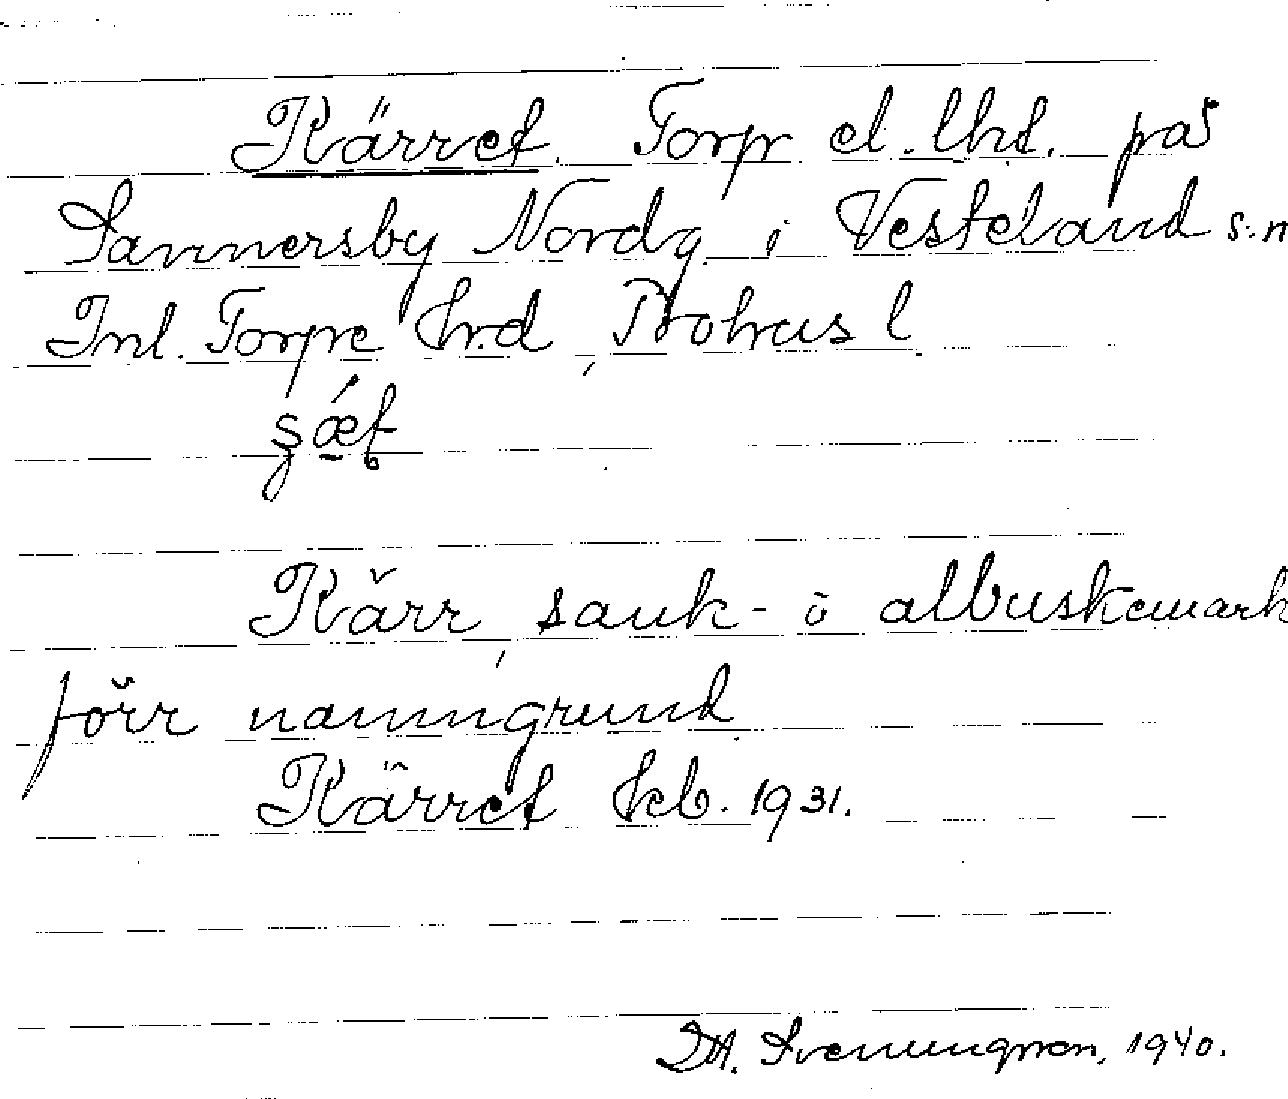 Kärret. Torp el. lht. på
Sannersby Nordg. i Vesteland s.n
Inl. Torpe hrd, Bohus l.
Kärr, sank- o albuskemark
förr namngrund
Kärret hkb. 1931.
D.A. Svenungsson, 1940.